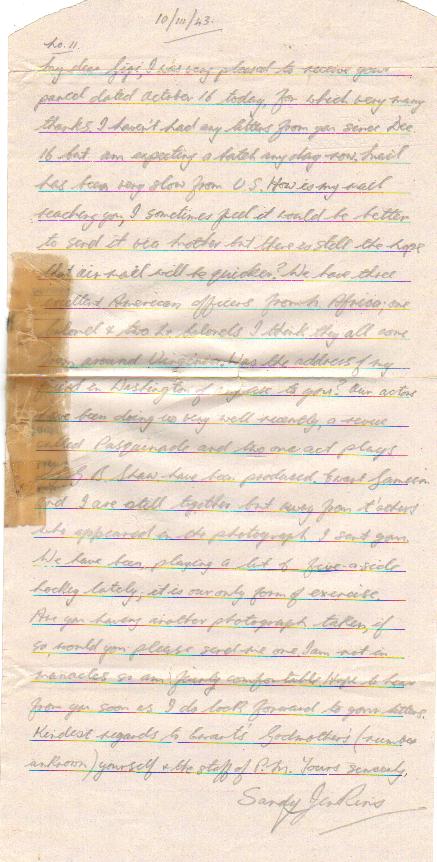 10/III/43.
No. 11.
My dear Gigi, I was very pleased to receive your
parcel dated October 16 today, for which very many
thanks. I haven't had any letters from you since Dec.
16 but am expecting a batch any day now. Mail
has been very slow from U.S. How is my mail
reaching you, I sometimes feel it would be better
to send it via mother but there is still the hope
that air mail will be quicker? We have three
excellent American officers from N. Africa; one
Colonel & two Lt. Colonels I think they all come
from around Virginia. Was the address of my
friend in Washington of use to you? Our actors
have been doing us very well recently, a revue
called Pasquinade and two one act plays
by G B Shaw have been produced. Ewart Jameson
and I are still together but away from t'others
who appeared in the photograph I sent you.
We have been playing a lot of five-a-side
hockey lately, it is our only form of exercise.
Are you having another photograph taken, if
so, would you please send me one. I am not in
manacles so am fairly comfortable. Hope to hear
from you soon as I do look forward to your letters.
Kindest regards to Ewart's Godmothers (number
unknown) yourself & the staff of P.M. Yours sincerely,
Sandy Jenkins